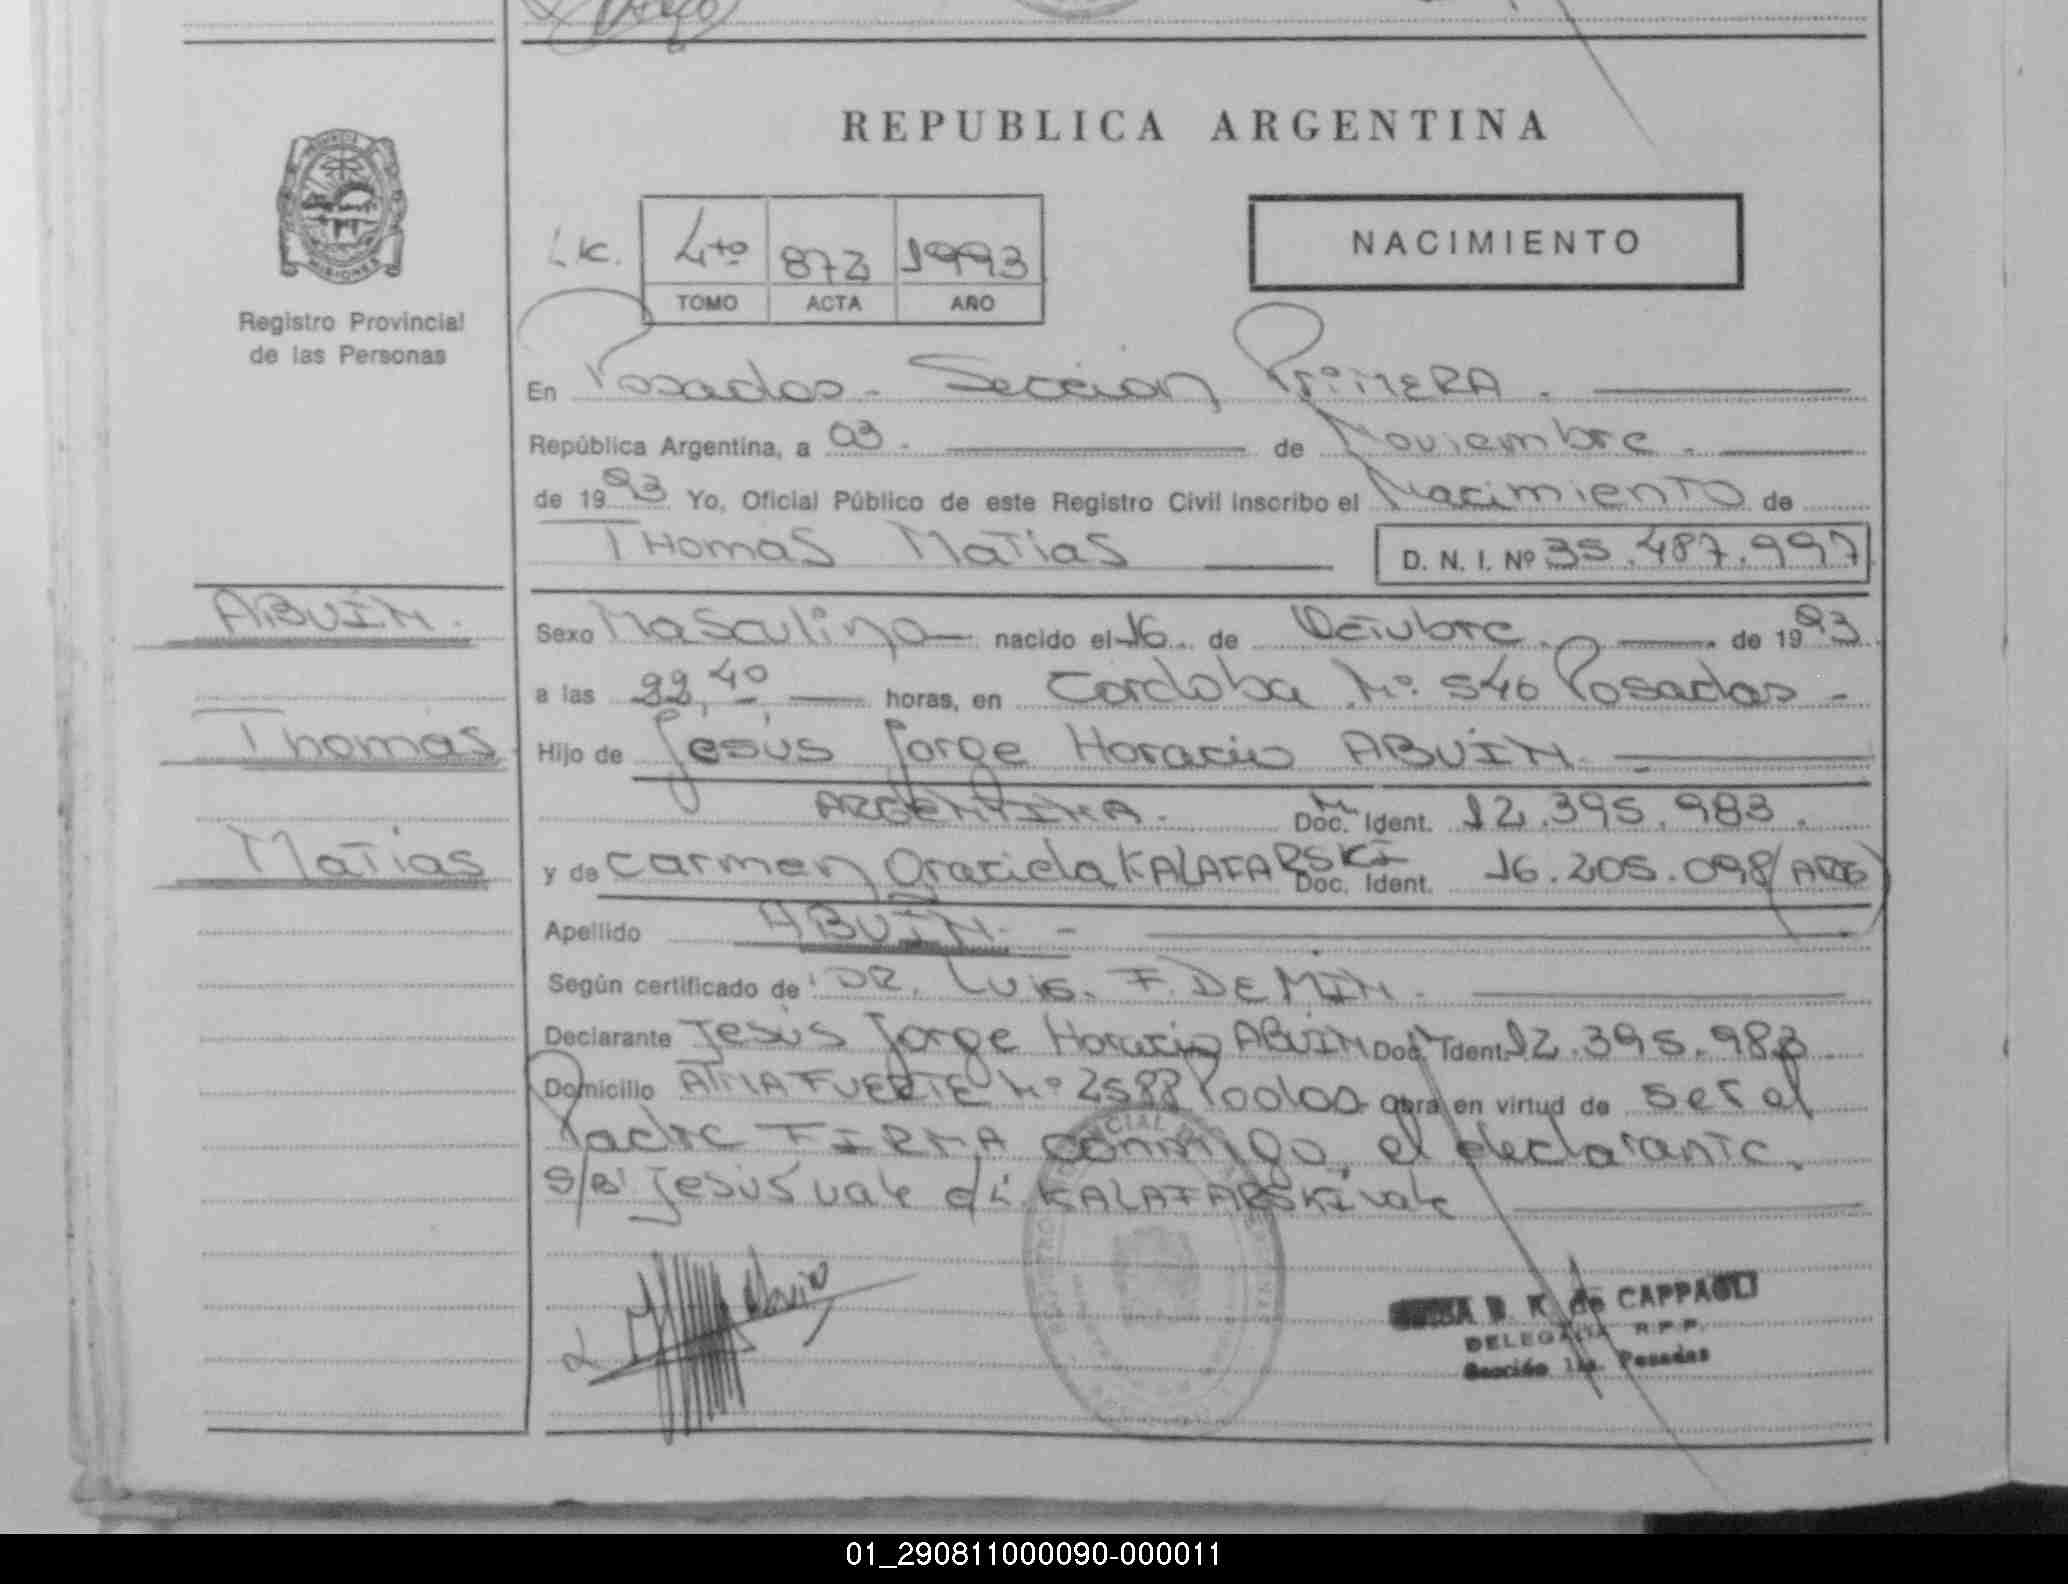 REPUBLICA ARGENTINA
MISIONES
Registro Provincial
de las Personas
Lic.
4to 873 1993
TOMO ACTA AÑO
NACIMIENTO
En Posadas - Sección PriMERA.
República Argentina, a 03. de Noviembre.
de 1993 Yo, Oficial Público de este Registro Civil inscribo el Nacimiento de
THomas Matias D. N. I. Nº 35.487.997
ABUÍN.
Sexo Masculino nacido el 16 de Octubre de 1993
a las 22,40 horas, en Cordoba Nº 546 Posadas -
Thomas
Hijo de Jesús Jorge Horacio ABUÍN.
ARGENTINA. Doc. Ident. 12.395.983.
Matias
y de Carmen Graciela KALAFARSKI Doc. Ident. 16.205.098 (ARG)
Apellido ABUÍN. -
Según certificado de DR. Luis. F. DEMIN.
Declarante Jesús Jorge Horacio ABUÍN Doc. Ident. 12.395.983
Domicilio Nº 2588 Posdas obra en virtud de ser el
Padre FIRMA conmigo, el declarante.
S/B' Jesús vale KALAFARSKI vale
CAPPAGLI
DELEGADA R.P.P.
Sección 1ra. Posadas
01_290811000090-000011